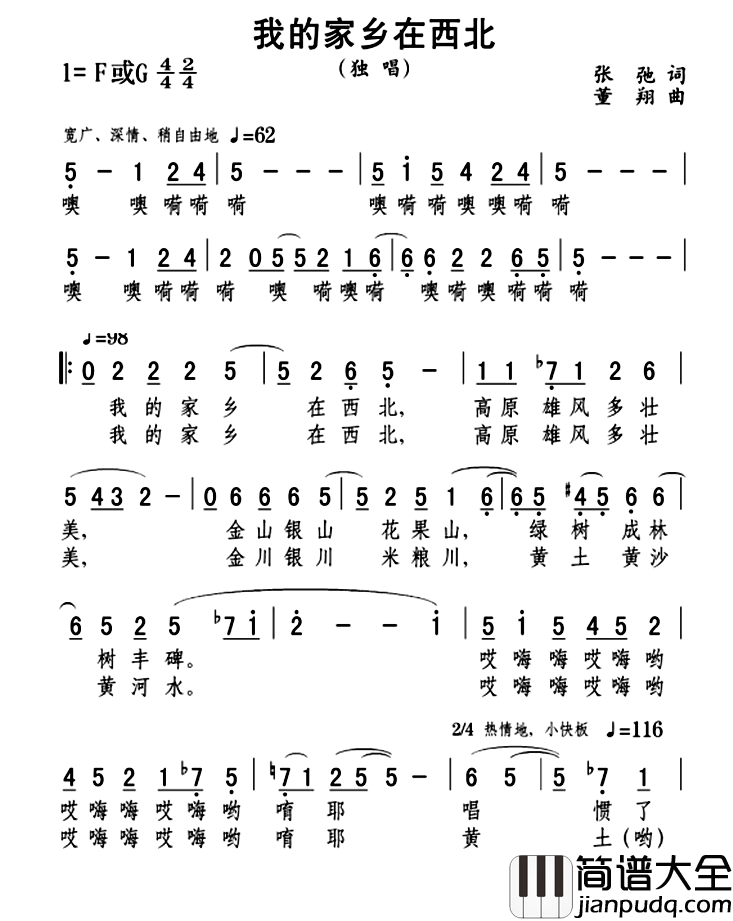 我的家乡在西北
(独唱)
1= F或G 4/4 2/4
张弛 词
董翔 曲
宽广、深情、稍自由地 ♩=62
5 - 1 24 | 5 - - - | 5 i 5 4 24 | 5 - - - |
噢 噢嗬嗬 嗬 噢嗬嗬噢噢嗬 嗬
5 - 1 24 | 2 05 5 2 1 6 | 6 6 2 2 6 5 | 5 - - - |
噢 噢嗬嗬 嗬 噢 嗬噢嗬 噢嗬噢嗬嗬 嗬
♩=98
‖: 0 2 2 2 5 | 5 2 6 5 - | 1 1 b7 1 2 6 |
我的家乡 在西北, 高原雄风多壮
我的家乡 在西北, 高原雄风多壮
5 43 2 - | 0 6 6 6 5 | 5 2 5 1 6 | 6 5 #4 5 6 6 |
美, 金山银山 花果山, 绿树成林
美, 金川银川 米粮川, 黄土黄沙
6 5 2 5 b7 i | 2 - - i | 5 i 5 4 5 2 |
树丰碑。 哎嗨嗨哎嗨哟
黄河水。 哎嗨嗨哎嗨哟
2/4 热情地, 小快板 ♩=116
4 5 2 1 b7 5 | ♮7 1 2 5 5 - | 6 5 5 | 5 b7 1 |
哎嗨嗨哎嗨哟 唷耶 唱 惯了
哎嗨嗨哎嗨哟 唷耶 黄 土(哟)
简谱大全
jianpudq.com